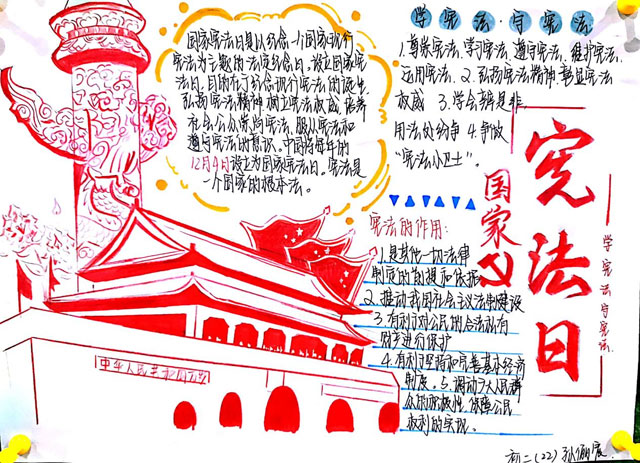 国家宪法日是以纪念一个国家现行
宪法为主题的法定纪念日。设立国家宪
法日，目的在于纪念现行宪法的诞生，
弘扬宪法精神 树立宪法权威 培养
社会公众崇尚宪法、服从宪法和
遵守宪法的意识。中国将每年的
12月4日设立为国家宪法日。宪法是
一个国家的根本法。
学宪法·守宪法
1.尊崇宪法、学习宪法、遵守宪法、维护宪法、
运用宪法、2.弘扬宪法精神、彰显宪法
权威 3.学会辨是非
用法处纷争 4.争做
“宪法小卫士”。
国家
宪法日
学宪法守宪法
宪法的作用：
1.是其他一切法律
制定的前提和依据
2.推动我国社会主义法制建设
3.有利于对公民的合法私有
财产进行保护
4.有利坚持和完善基本经济
制度。5.调动广大人民群
众的积极性，保障公民
权利的实现。
初二(22)孙